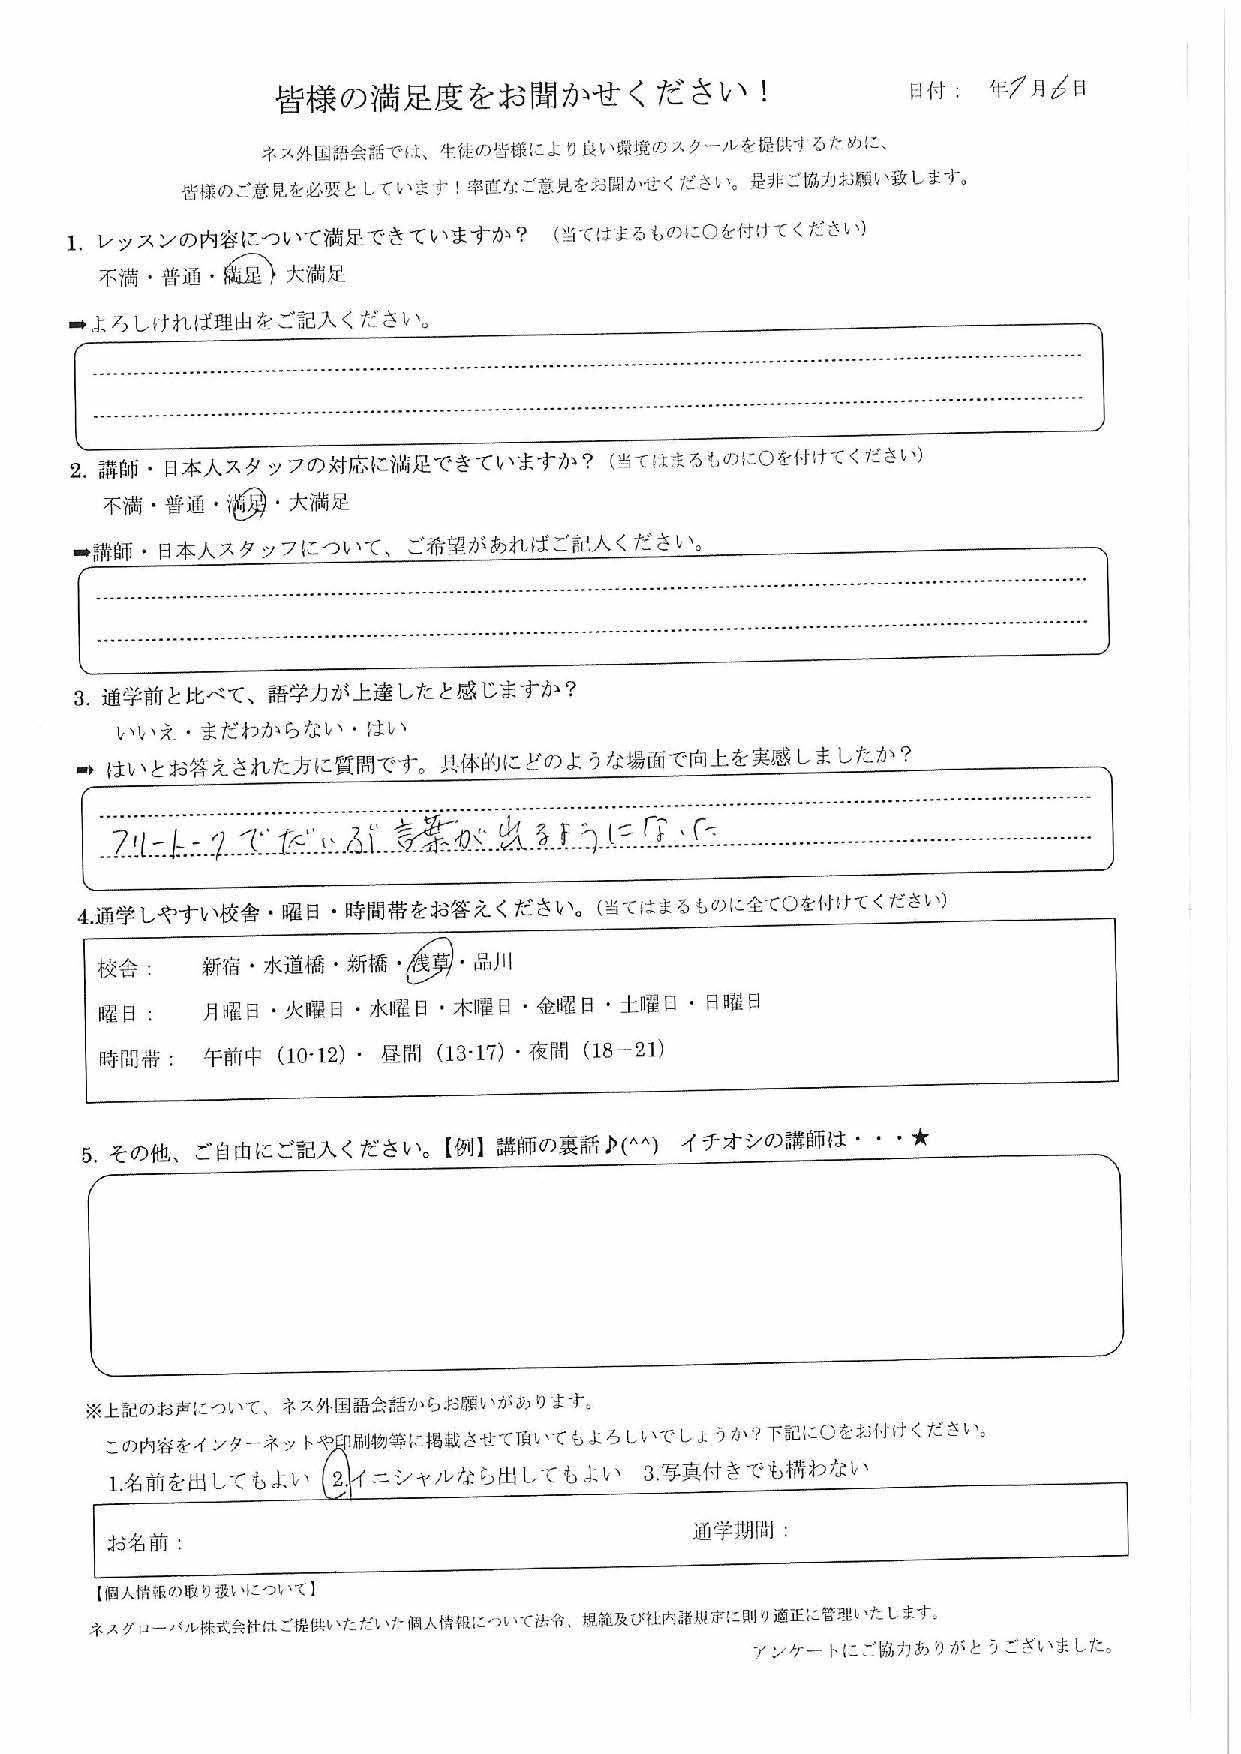 皆様の満足度をお聞かせください！
日付： 年9月6日
ネス外国語会話では、生徒の皆様により良い環境のスクールを提供するために、
皆様のご意見を必要としています！率直なご意見をお聞かせください。是非ご協力お願い致します。
1. レッスンの内容について満足できていますか？ （当てはまるものに〇を付けてください）
不満・普通・満足・大満足
➡よろしければ理由をご記入ください。
2. 講師・日本人スタッフの対応に満足できていますか？（当てはまるものに〇を付けてください）
不満・普通・満足・大満足
➡講師・日本人スタッフについて、ご希望があればご記入ください。
3. 通学前と比べて、語学力が上達したと感じますか？
いいえ・まだわからない・はい
➡ はいとお答えされた方に質問です。具体的にどのような場面で向上を実感しましたか？
フリートークでだいぶ言葉が出るようになった
4.通学しやすい校舎・曜日・時間帯をお答えください。（当てはまるものに全て〇を付けてください）
校舎： 新宿・水道橋・新橋・浅草・品川
曜日： 月曜日・火曜日・水曜日・木曜日・金曜日・土曜日・日曜日
時間帯： 午前中（10-12）・ 昼間（13-17）・夜間（18－21）
5. その他、ご自由にご記入ください。【例】講師の裏話♪(^^) イチオシの講師は・・・★
※上記のお声について、ネス外国語会話からお願いがあります。
この内容をインターネットや印刷物等に掲載させて頂いてもよろしいでしょうか？下記に〇をお付けください。
1.名前を出してもよい 2.イニシャルなら出してもよい 3.写真付きでも構わない
お名前： 通学期間：
【個人情報の取り扱いについて】
ネスグローバル株式会社はご提供いただいた個人情報について法令、規範及び社内諸規定に則り適正に管理いたします。
アンケートにご協力ありがとうございました。